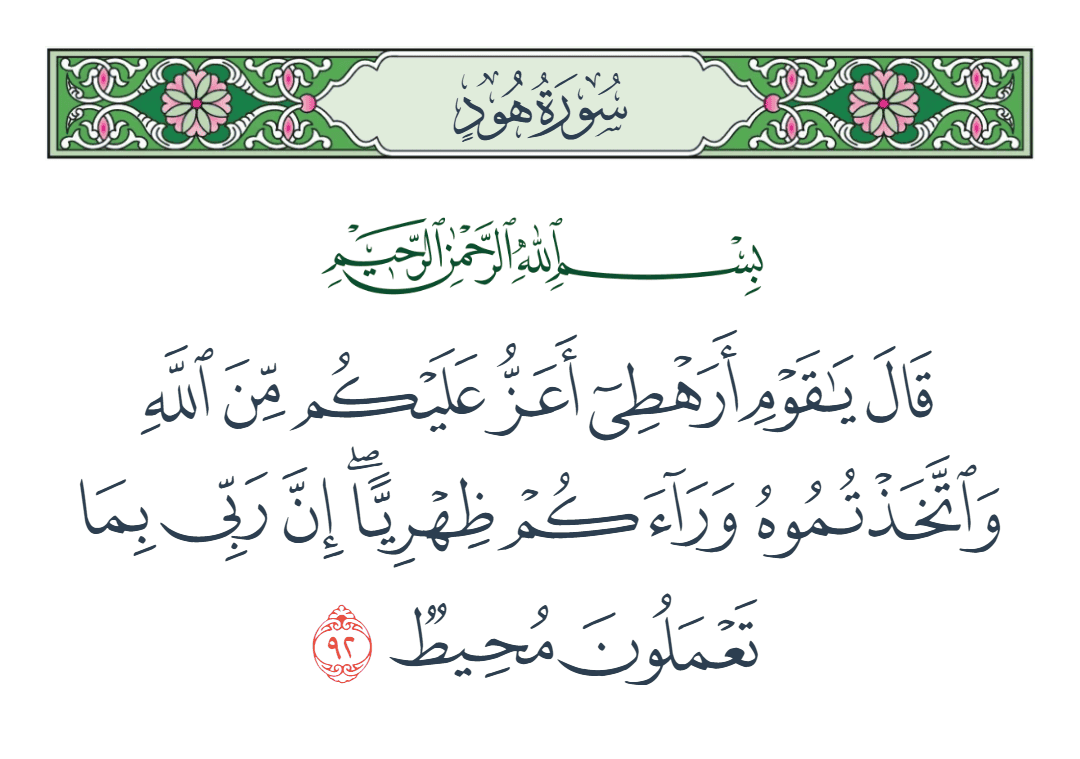 سُورَةُ هُودٍ
بِسْمِ ٱللَّهِ ٱلرَّحْمَٰنِ ٱلرَّحِيمِ
قَالَ يَٰقَوْمِ أَرَهْطِىٓ أَعَزُّ عَلَيْكُم مِّنَ ٱللَّهِ
وَٱتَّخَذْتُمُوهُ وَرَآءَكُمْ ظِهْرِيًّا ۖ إِنَّ رَبِّى بِمَا
تَعْمَلُونَ مُحِيطٌ ٩٢